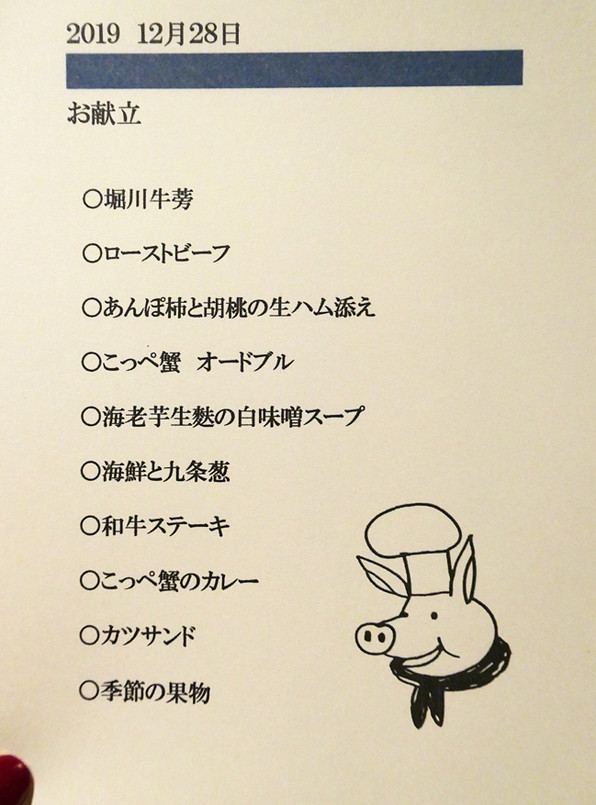 2019 12月28日
お献立
〇堀川牛蒡
〇ローストビーフ
〇あんぽ柿と胡桃の生ハム添え
〇こっペ蟹 オードブル
〇海老芋生麩の白味噌スープ
〇海鮮と九条葱
〇和牛ステーキ
〇こっペ蟹のカレー
〇カツサンド
〇季節の果物